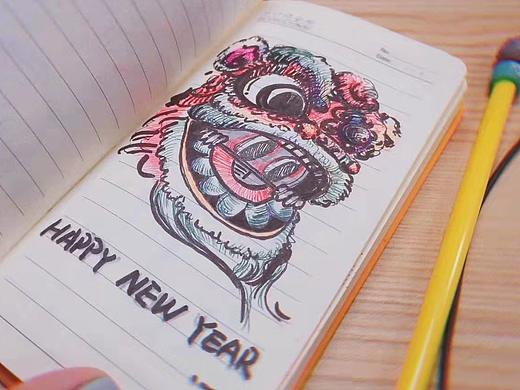 No.
Date
HAPPY NEW YEAR